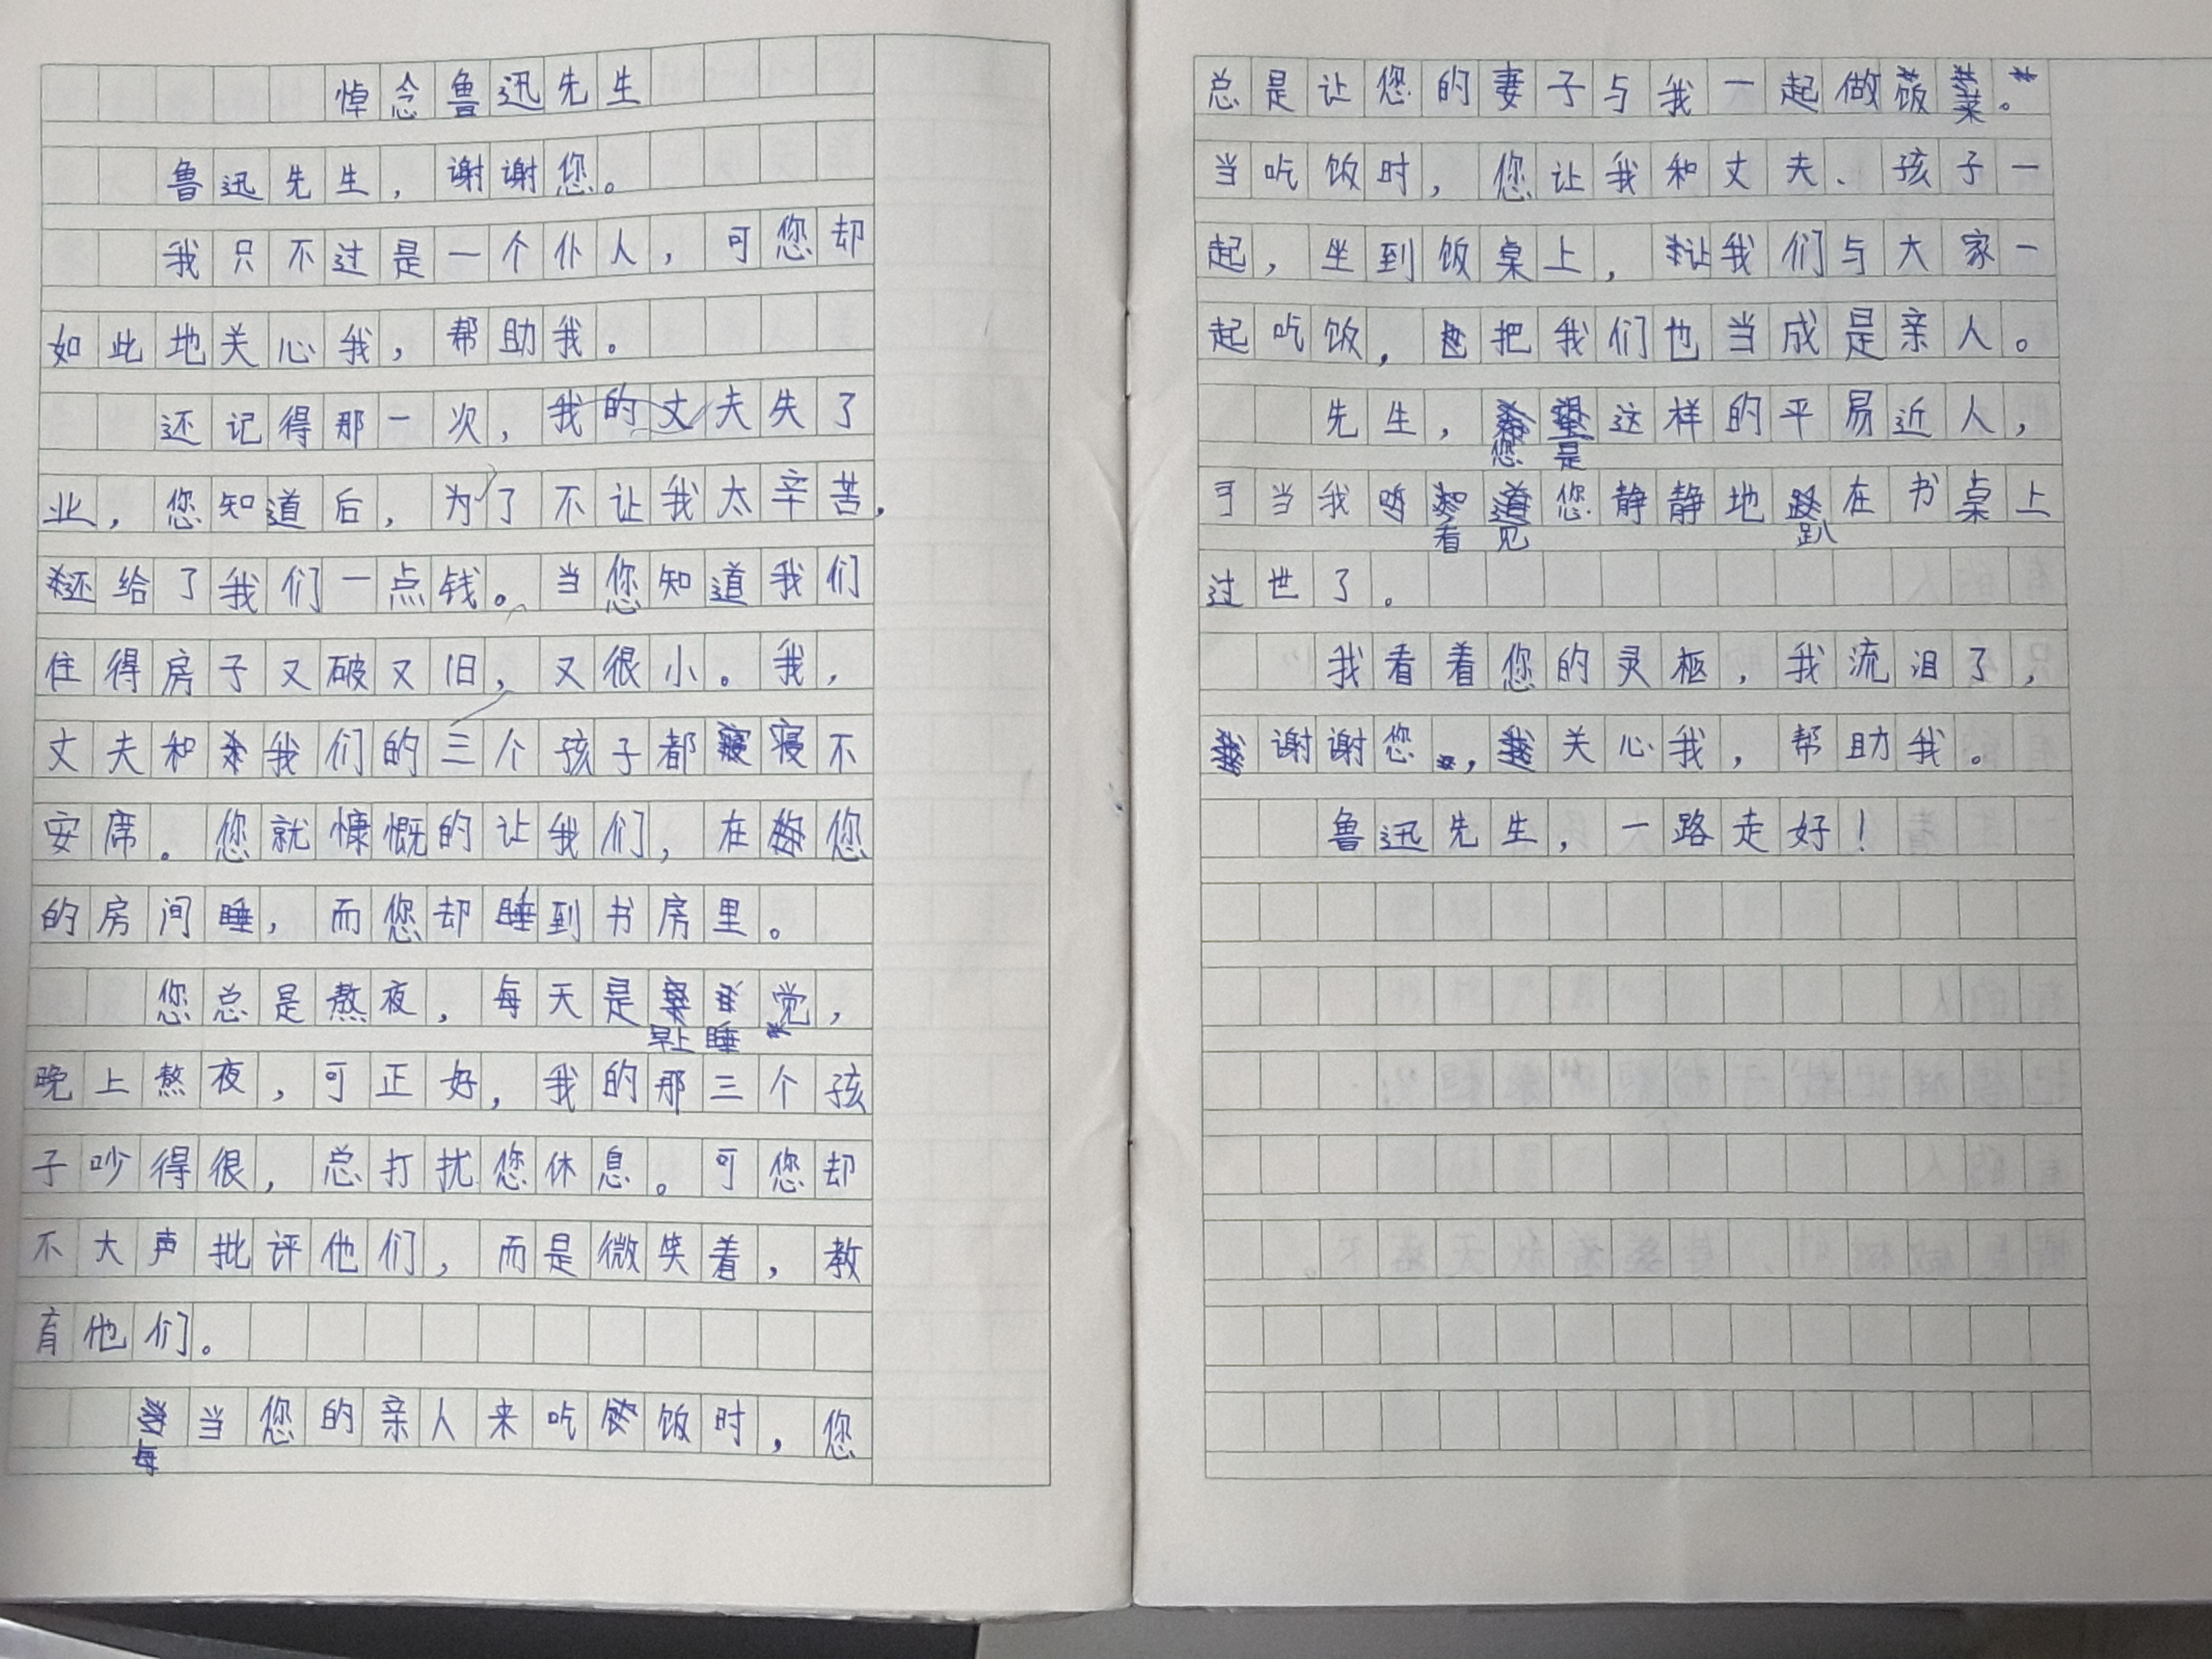 悼念鲁迅先生
鲁迅先生，谢谢您。
我只不过是一个仆人，可您却
如此地关心我，帮助我。
还记得那一次，我的丈夫失了
业，您知道后，为了不让我太辛苦，
还给了我们一点钱。当您知道我们
住得房子又破又旧，又很小。我，
丈夫和我们的三个孩子都寝不
安席。您就慷慨的让我们，在您
的房间睡，而您却睡到书房里。
您总是熬夜，每天是早上睡觉，
晚上熬夜，可正好，我的那三个孩
子吵得很，总打扰您休息。可您却
不大声批评他们，而是微笑着，教
育他们。
每当您的亲人来吃饭时，您
总是让您的妻子与我一起做饭菜。
当吃饭时，您让我和丈夫、孩子一
起，坐到饭桌上，让我们与大家一
起吃饭，把我们也当成是亲人。
先生，您是这样的平易近人，
可当我看见您静静地趴在书桌上
过世了。
我看着您的灵柩，我流泪了，
谢谢您，关心我，帮助我。
鲁迅先生，一路走好！